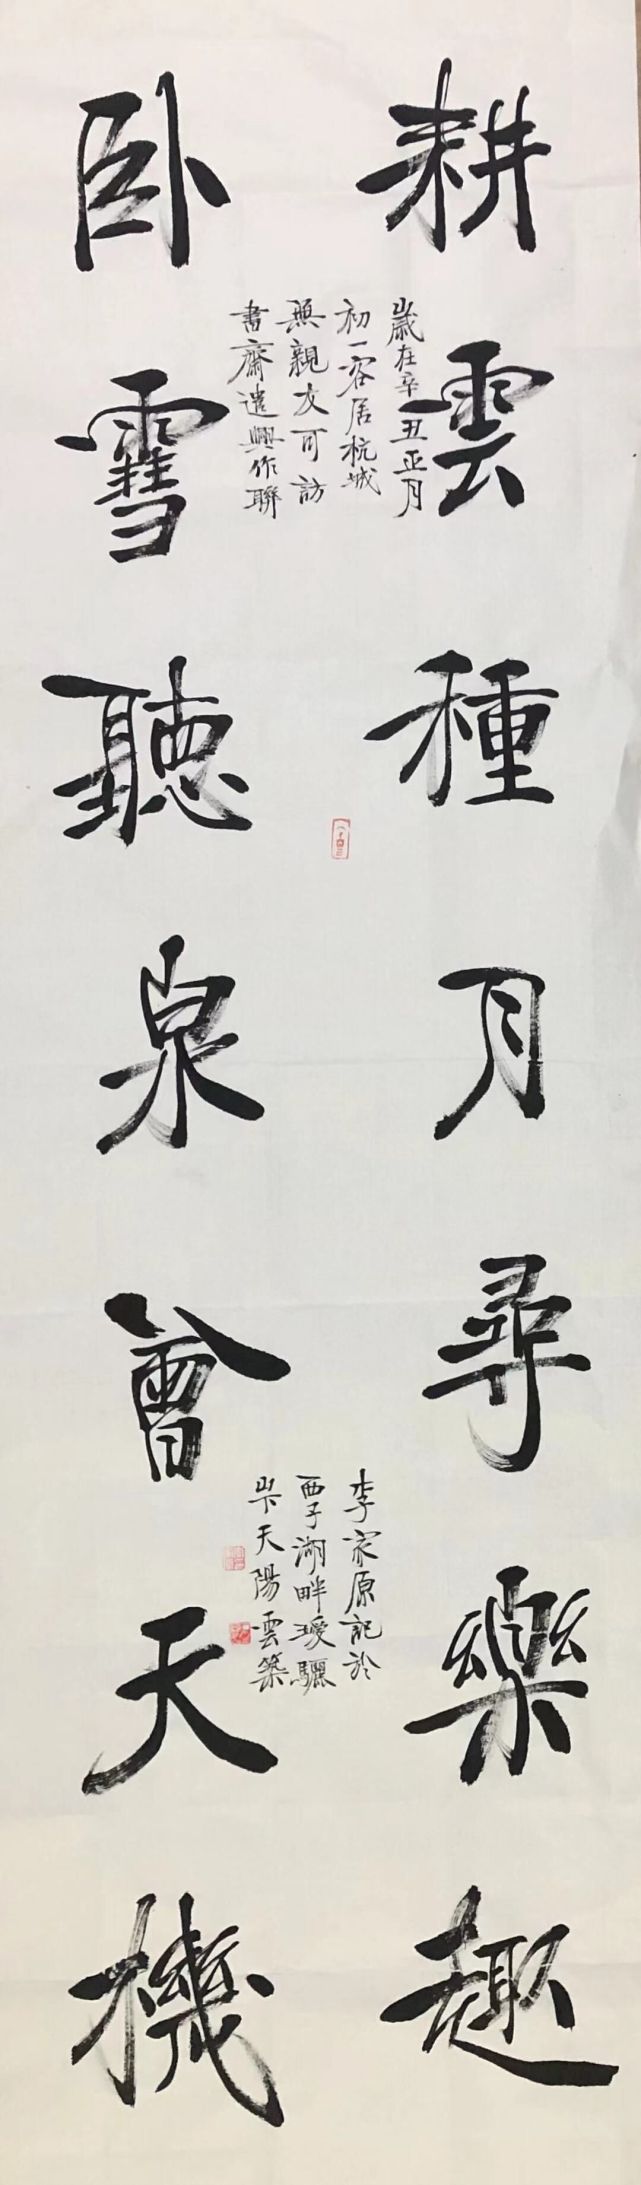 耕雲種月尋樂趣
歲在辛丑正月
初一客居杭城
無親友可訪
書齋遣興作聯
卧雪聽泉會天機
李家原記於
西子湖畔瑷驪
天陽雲築